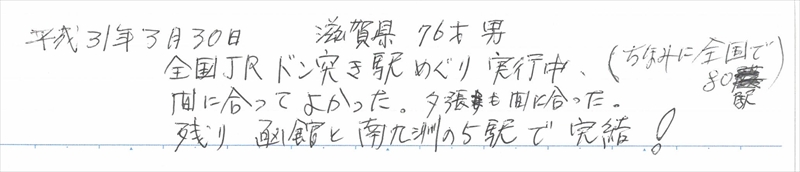 平成31年3月30日 滋賀県 76才 男
全国JRドン突き駅めぐり実行中、(ちなみに全国で80駅)
間に合ってよかった。夕張も間に合った。
残り函館と南九洲の5駅で完結!